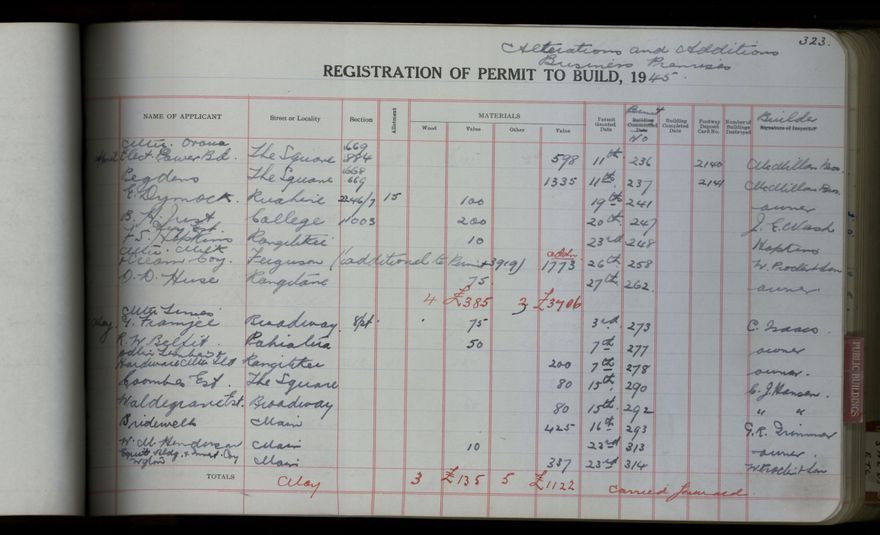 323.
Alterations and Additions
Business Premises
REGISTRATION OF PERMIT TO BUILD, 1945.
NAME OF APPLICANT Street or Locality Section Allotment MATERIALS Wood Value Other Value Permit Granted Date Permit No Building Commenced Date Building Completed Date Footway Deposit Card No. Number of Buildings Destroyed Builder Signature of Inspector
Elect. Power Bd. The Square 669 884 598 11th 236 2140 McMillan Bros.
The Square 668 669 1335 11th 237 2141 McMillan Bros.
E. Dymock. Ruahine 2246/7 15 100 19th 241 owner
B. H. Just College 1003 200 20th 247 J. E. Wash
F. S. Hopkins Rangitikei 10 23rd 248 Hopkins
Coy. Ferguson (additional to Permit 3919) 1773 26th 258 W. Procter & Son
O. D. Huse Rangitane 75 27th 262. owner
4 £385 3 £3706
Broadway 8pt. 75 3rd 273 C. Isaacs.
R. W. Belfit. Pahiatua 50 7th 277 owner
Rangitikei 200 7th 278 owner.
Coombes Est. The Square 80 15th 290 C. J. Hansen.
Waldegrave Est. Broadway 80 15th 292 " "
Bridewell Main 425 16th 293 G. R. Trimmer
W. M. Henderson Main 10 22nd 313 owner.
Main 337 23rd 314 W Procter & Son
TOTALS May 3 £135 5 £1122 carried forward.
PUBLIC BUILDINGS